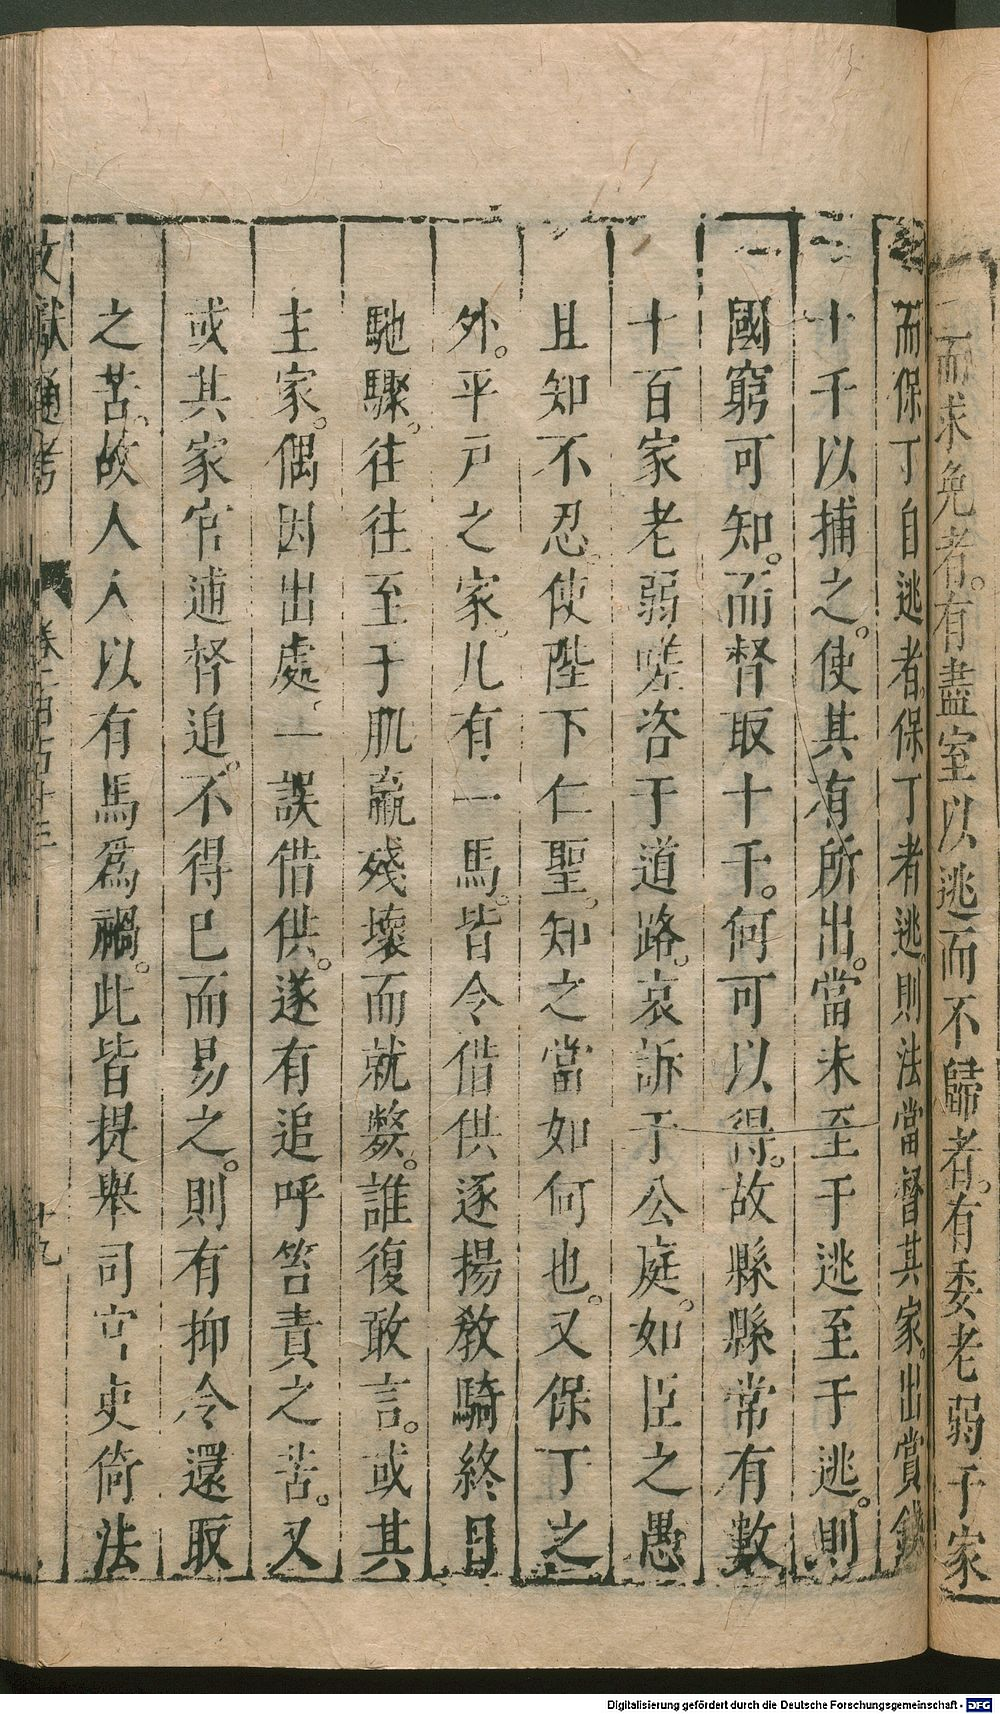 而求免者。有盡室以逃而不歸者。有委老弱于家
而保丁自逃者。保丁者逃。則法當督其家出賞錢
十千以捕之。使其有所出。當未至于逃至于逃。則
國窮可知。而督取十千。何可以得。故縣縣常有數
十百家老弱嗟咨于道路。哀訴于公庭。如臣之愚
且知不忍。使陛下仁聖。知之當如何也。又保丁之
外。平戸之家。凡有一馬。皆令借供逐揚教騎終日
馳驟。往往至于肌羸殘壞而就斃。誰復敢言。或其
主家。偶因出處。一誤借供。遂有追呼笞責之苦。又
或其家官逋督迫。不得已而易之。則有抑令還取
之苦。故人人以有馬爲禍。此皆提舉司官吏倚法
文獻通考 卷一百五十三 十九
Digitalisierung gefördert durch die Deutsche Forschungsgemeinschaft - DFG